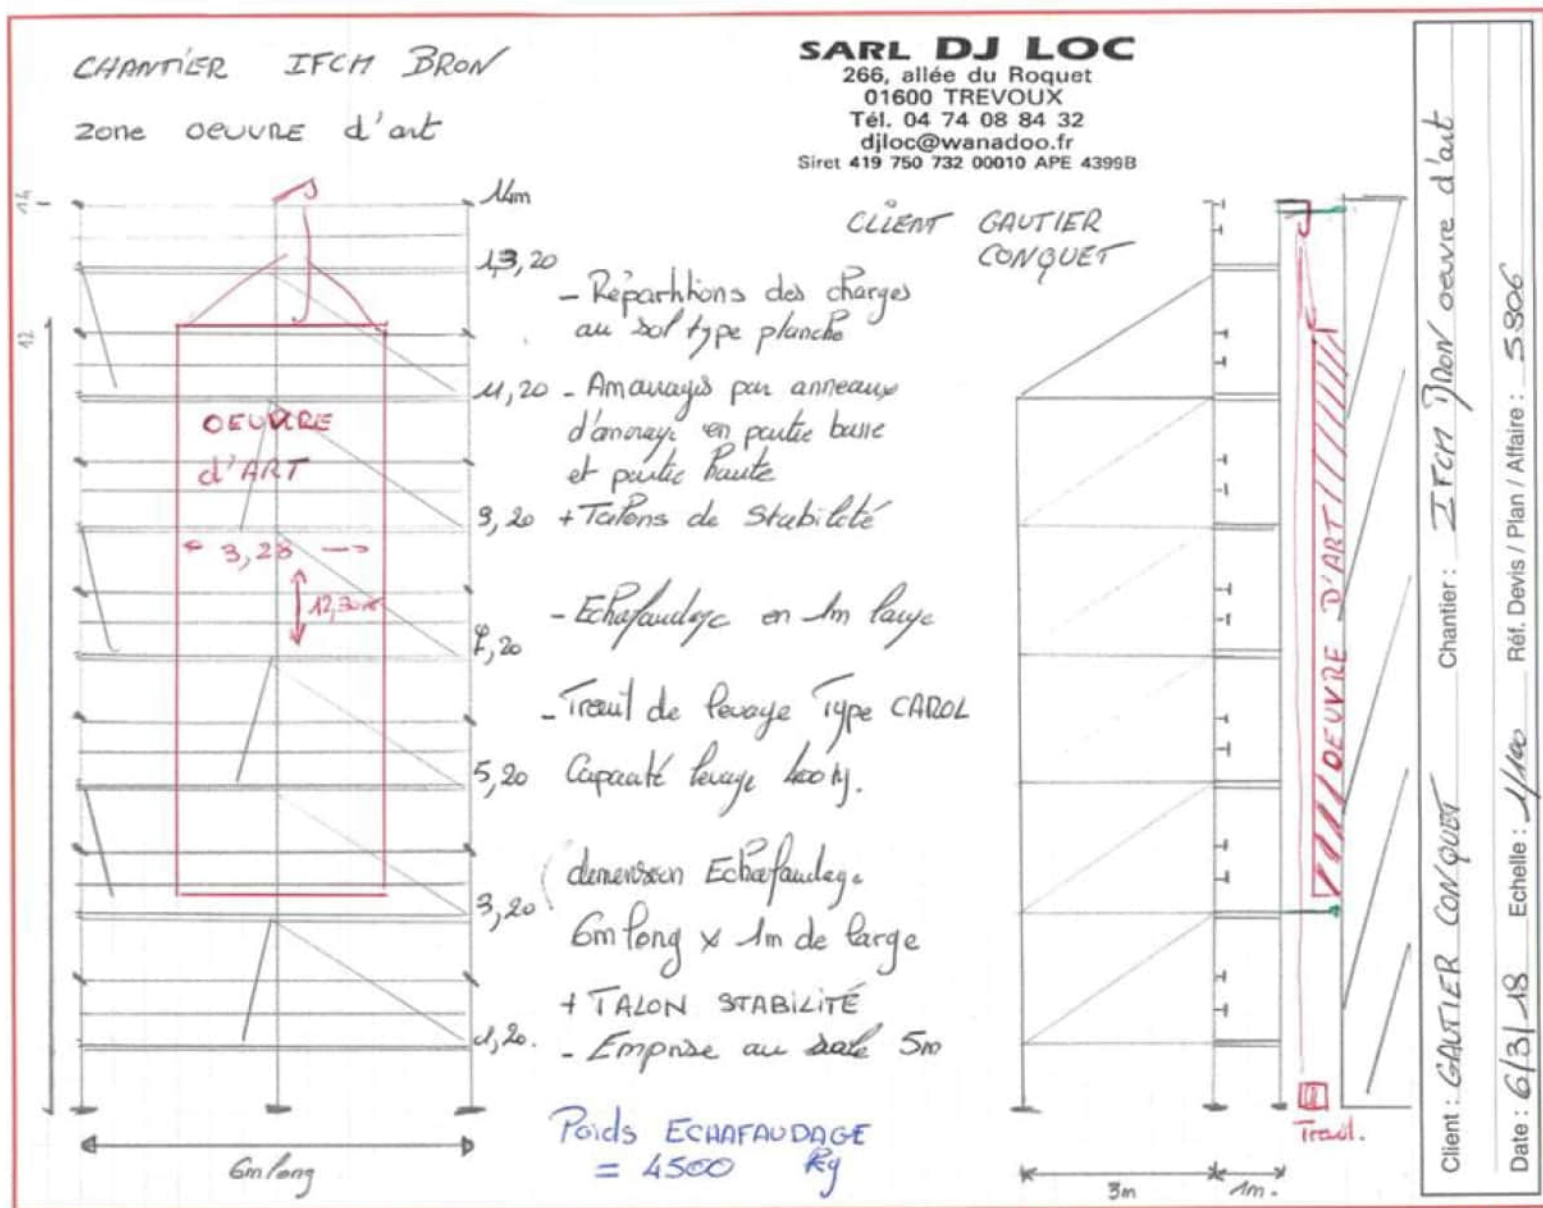 CHANTIER IFCM BRON
zone OEUVRE d'art
SARL DJ LOC
266, allée du Roquet
01600 TREVOUX
Tél. 04 74 08 84 32
djloc@wanadoo.fr
Siret 419 750 732 00010 APE 4399B
CLIENT GAUTIER
CONQUET
14
12
14m
13,20
11,20
9,20
7,20
5,20
3,20
1,20.
OEUVRE
d'ART
3,28
12,30m
6m long
- Répartitions des charges
au sol type planche
- Amarrages par anneaux
d'ancrage en partie basse
et partie haute
+ Talons de Stabilité
- Echafaudage en 1m large
- Treuil de levage Type CAROL
Capacité levage 400 kg.
dimension Echafaudage
6m long x 1m de large
+ TALON STABILITÉ
- Emprise au sole 5m
Poids ECHAFAUDAGE
= 4500 kg
OEUVRE D'ART
Treuil.
3m
1m.
Client : GAUTIER CONQUET Chantier : IFCM BRON oeuvre d'art
Date : 6/3/18 Echelle : 1/100 Réf. Devis / Plan / Affaire : 5806